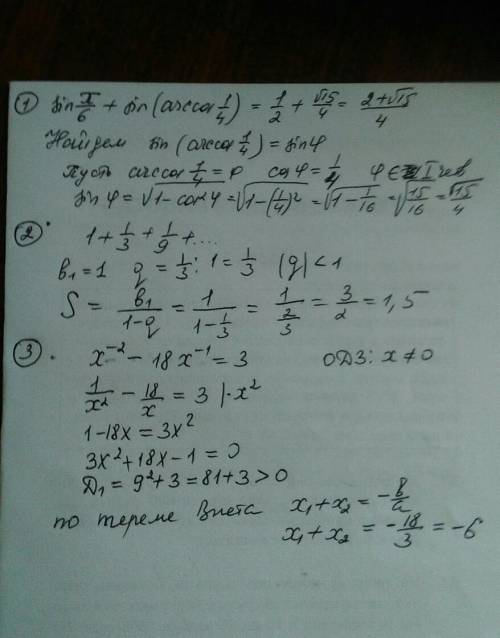 ① sin π/6 + sin (arccos 1/4) = 1/2 + √15/4 = 2+√15/4
Найдем sin (arccos 1/4) = sin φ
Пусть arccos 1/4 = φ cos φ = 1/4 φ ∈ I чев
sin φ = √1-cos²φ = √1-(1/4)² = √1-1/16 = √15/16 = √15/4
② 1 + 1/3 + 1/9 + ....
в₁ = 1 q = 1/3 : 1 = 1/3 |q| < 1
S = в₁/1-q = 1/1-1/3 = 1/2/3 = 3/2 = 1,5
③ . x⁻² - 18x⁻¹ = 3 ОДЗ: x ≠ 0
1/x² - 18/x = 3 |·x²
1-18x = 3x²
3x²+18x-1 = 0
Д₁ = 9²+3 = 81+3 > 0
по тереме Виета x₁+x₂ = -в/a
x₁+x₂ = -18/3 = -6